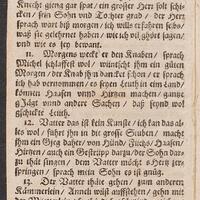 Knecht gieng gar spat / ein grosser Herr solt schi-
cken / sein Sohn und Tochter grad / der Herr
sprach wart biß morgen / ich will erfahren sehr /
waß sie gelehrnet haben / wie ich vil ghört sagen /
und wie es sey bewant.
11. Morgens weckt er den Knaben / sprach
Michel schlaffest wol / wünscht ihm ein gůten
Morgen / der Knab ihm dancket schon / er sprach
ich hab vernommen / es seyen Leuth in ein Land /
können Haasen wind Hirzen machen / gantze
Jägt wind anderer Sachen / daß seynd wol
schickte Leuth.
12. Vatter das ist kein Kunste / ich kan das al-
les wol / führt ihn in die grosse Stuben / macht
ihm ein Gjeg daher / von Hünd / Füchs / Haasen /
Hirzen / auch ein Gestripp darzu / der Sohn dar-
zu thåt singen / dem Vatter möcht s'Hertz zer-
springen / sprach mein Sohn es ist gnůg.
13. Der Vatter thåte gehen / zum anderen
Kåmmerlein / Anneli wilt auffstehen / gehn mit